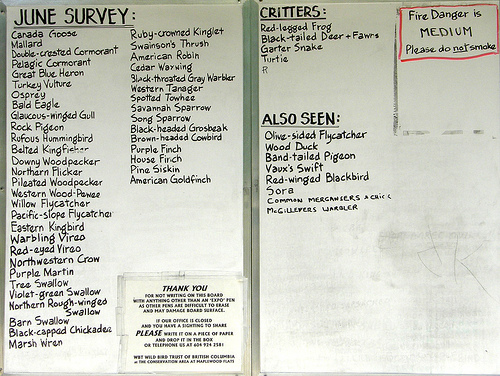 JUNE SURVEY:
Canada Goose
Mallard
Double-crested Cormorant
Pelagic Cormorant
Great Blue Heron
Turkey Vulture
Osprey
Bald Eagle
Glaucous-winged Gull
Rock Pigeon
Rufous Hummingbird
Belted Kingfisher
Downy Woodpecker
Northern Flicker
Pileated Woodpecker
Western Wood-Pewee
Willow Flycatcher
Pacific-slope Flycatcher
Eastern Kingbird
Warbling Vireo
Red-eyed Vireo
Northwestern Crow
Purple Martin
Tree Swallow
Violet-green Swallow
Northern Rough-winged
Swallow
Barn Swallow
Black-capped Chickadee
Marsh Wren
Ruby-crowned Kinglet
Swainson's Thrush
American Robin
Cedar Waxwing
Black-throated Gray Warbler
Western Tanager
Spotted Towhee
Savannah Sparrow
Song Sparrow
Black-headed Grosbeak
Brown-headed Cowbird
Purple Finch
House Finch
Pine Siskin
American Goldfinch
THANK YOU
FOR NOT WRITING ON THIS BOARD
WITH ANYTHING OTHER THAN AN 'EXPO' PEN
AS OTHER PENS ARE DIFFICULT TO ERASE
AND MAY DAMAGE BOARD SURFACE.
IF OUR OFFICE IS CLOSED
AND YOU HAVE A SIGHTING TO SHARE
PLEASE WRITE IT ON A PIECE OF PAPER
AND DROP IT IN THE BOX
OR TELEPHONE US AT 604 924 2581
WBT WILD BIRD TRUST OF BRITISH COLUMBIA
at THE CONSERVATION AREA AT MAPLEWOOD FLATS
CRITTERS:
Red-legged Frog
Black-tailed Deer + Fawns
Garter Snake
Turtle
R
ALSO SEEN:
Olive-sided Flycatcher
Wood Duck
Band-tailed Pigeon
Vaux's Swift
Red-winged Blackbird
Sora
COMMON MERGANSERS
McGILLEVERS WARBLER
Fire Danger is
MEDIUM
Please do not smoke